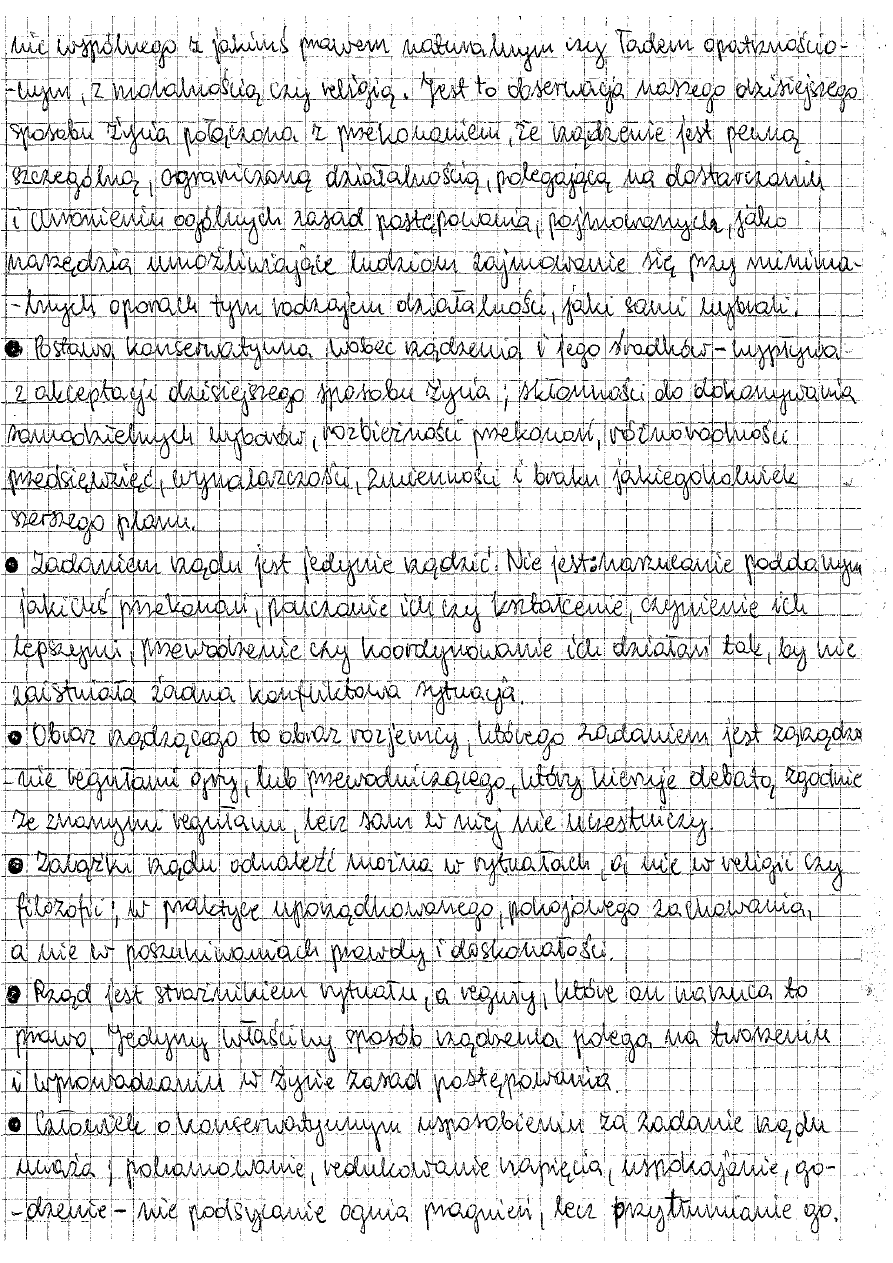 nic wspólnego z jakimś prawem naturalnym czy ładem opatrznościo-
-wym, z moralnością czy religią. Jest to obserwacja naszego dzisiejszego
sposobu życia połączona z przekonaniem, że rządzenie jest pewną
szczególną, ograniczoną działalnością, polegającą na dostarczaniu
i chronieniu ogólnych zasad postępowania, pojmowanych, jako
narzędzia umożliwiające ludziom zajmowanie się przy minima-
-lnych oporach tym rodzajem działalności, jaki sami wybrali.
● Postawa konserwatywna wobec rządzenia i jego środków – wypływa
z akceptacji dzisiejszego sposobu życia; skłonności do dokonywania
samodzielnych wyborów, rozbieżności przekonań, różnorodności
przedsięwzięć, wynalazczości, zmienności i braku jakiegokolwiek
szerszego planu.
● Zadaniem rządu jest jedynie rządzić. Nie jest: narzucanie poddanym
jakichś przekonań, pouczanie ich czy kształcenie, czynienie ich
lepszymi, przewodzenie czy koordynowanie ich działań tak, by nie
zaistniała żadna konfliktowa sytuacja.
● Obraz rządzącego to obraz rozjemcy, którego zadaniem jest zarządza
-nie regułami gry, lub przewodniczącego, który kieruje debatą zgodnie
ze znanymi regułami, lecz sam w niej nie uczestniczy.
● Zalążki rządu odnaleźć można w rytuałach, a nie w religii czy
filozofii; w praktyce uporządkowanego, pokojowego zachowania,
a nie w poszukiwaniach prawdy i doskonałości.
● Rząd jest strażnikiem rytuału, a reguły, które on narzuca to
prawo. Jedyny właściwy sposób rządzenia polega na tworzeniu
i wprowadzaniu w życie zasad postępowania.
● Człowiek o konserwatywnym usposobieniu za zadanie rządu
uważa; pohamowanie, redukowanie napięcia, uspokajanie, go-
-dzenie – nie podsycanie ognia pragnień, lecz przytłumianie go.